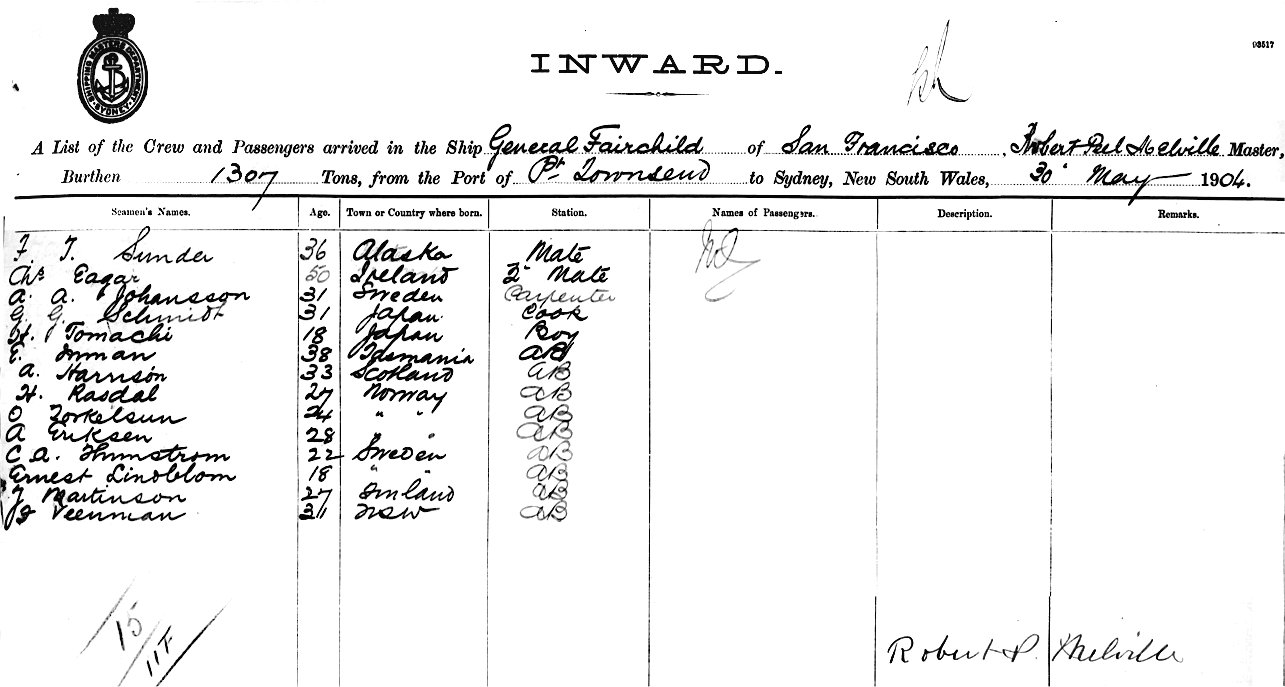 SHIPPING MASTERS DEPARTMENT SYDNEY
INWARD.
93517
A List of the Crew and Passengers arrived in the Ship General Fairchild of San Francisco, Robert Peel Melville Master,
Burthen 1307 Tons, from the Port of Pt Townsend to Sydney, New South Wales, 30 May 1904.
Seamen's Names. Age. Town or Country where born. Station. Names of Passengers. Description. Remarks.
F. T. Sunder 36 Alaska Mate
Chs Eagar 50 Ireland 2 Mate
A. A. Johansson 31 Sweden Carpenter
G. G. Schmidt 31 Japan Cook
H. Tomachi 18 Japan Boy
E. Inman 38 Tasmania AB
A. Harrison 33 Scotland AB
H. Rasdal 27 Norway AB
O Torkelsun 24 " " AB
A Eriksen 28 " " AB
C. A. Humstrom 22 Sweden AB
Ernest Lindblom 18 " " AB
J Martinson 27 Finland AB
Veenman 31 NSW AB
15
117
Robert P. Melville